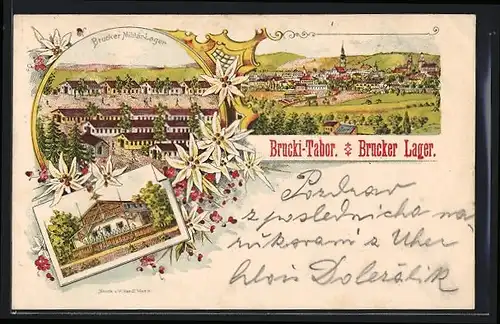 Brucker Militär Lager.
Brucki-Tabor. Brucker Lager.
Pozdrav
z posledních na
rukování z Uher
Doležálik